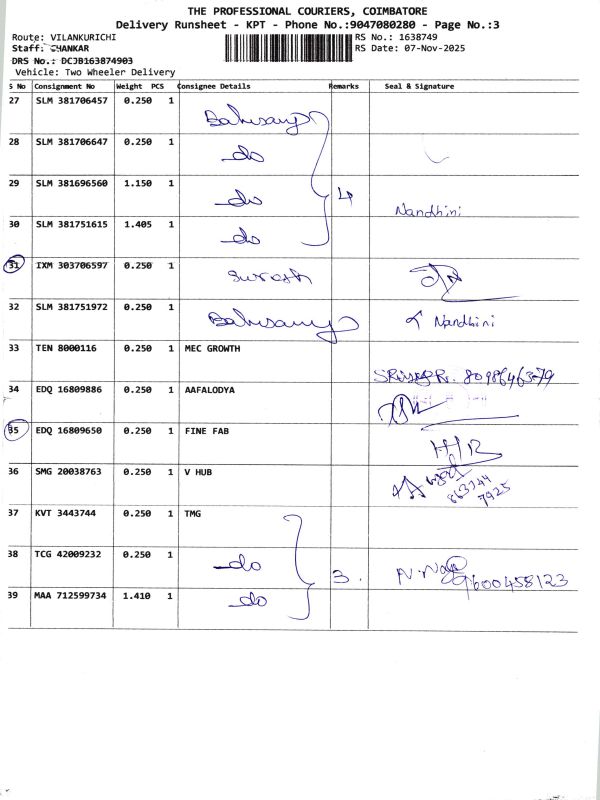 THE PROFESSIONAL COURIERS, COIMBATORE
Delivery Runsheet - KPT - Phone No.:9047080280 - Page No.:3
Route: VILANKURICHI RS No.: 1638749
Staff: SHANKAR RS Date: 07-Nov-2025
DRS No.: DCJB163874903
Vehicle: Two Wheeler Delivery
S No Consignment No Weight PCS Consignee Details Remarks Seal & Signature
27 SLM 381706457 0.250 1
28 SLM 381706647 0.250 1 do
29 SLM 381696560 1.150 1 do 4 Nandhini
30 SLM 381751615 1.405 1 do
31 IXM 303706597 0.250 1 Suresh
32 SLM 381751972 0.250 1 Nandhini
33 TEN 8000116 0.250 1 MEC GROWTH
34 EDQ 16809886 0.250 1 AAFALODYA
35 EDQ 16809650 0.250 1 FINE FAB
36 SMG 20038763 0.250 1 V HUB
37 KVT 3443744 0.250 1 TMG
38 TCG 42009232 0.250 1 do 3. 9600458123
39 MAA 712599734 1.410 1 do